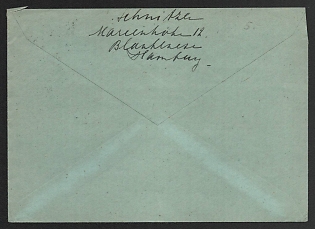 Schnitzler
Marienhöhe 12
Blankenese
Hamburg